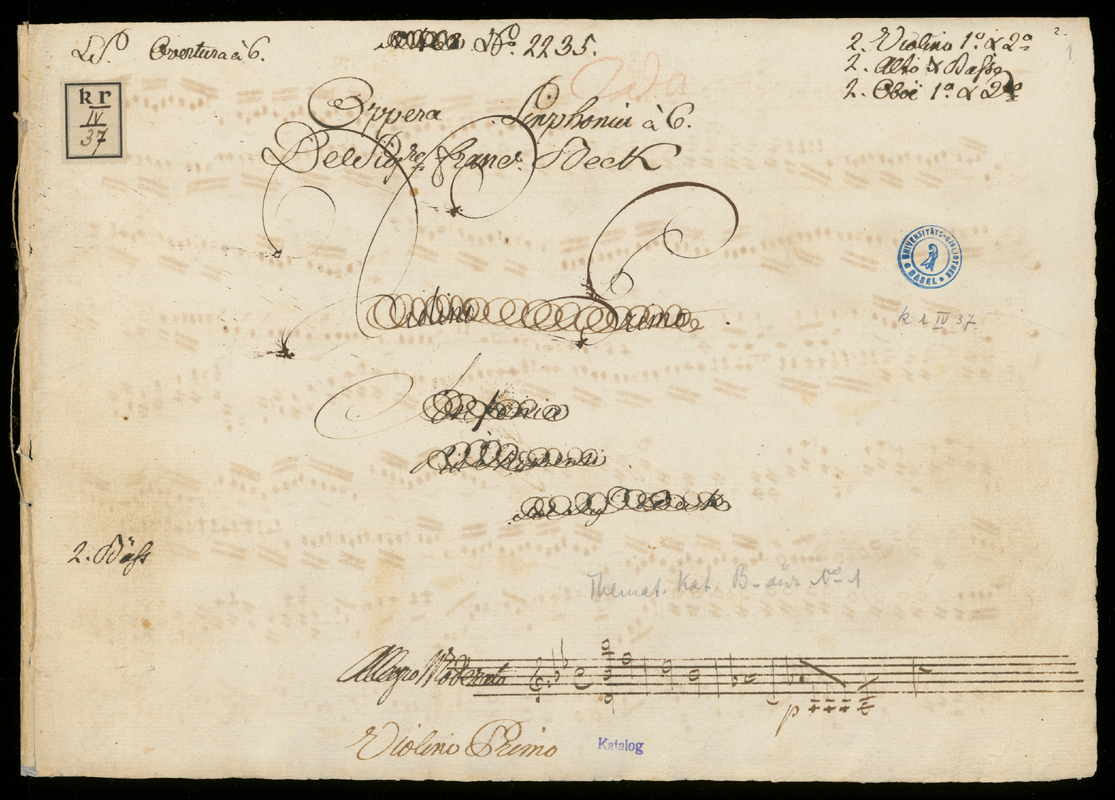 Overtura à 6.
No. 2235.
2. Violino 1o. & 2o
2. Alto & Basso
2. Oboi 1o. & 2do
2.
1
kr
IV
37
Oppera Sinphonia à 6.
Del Sigre. Franc. Beck
UNIVERSITÄTS-BIBLIOTHEK BASEL
k r IV 37.
Violino Primo.
Sinfonia
Del Sigr Beck
2. Bäss
Themat. Kat. B-dur No 1
Allegro Moderato
p
Violino Primo
Katalog